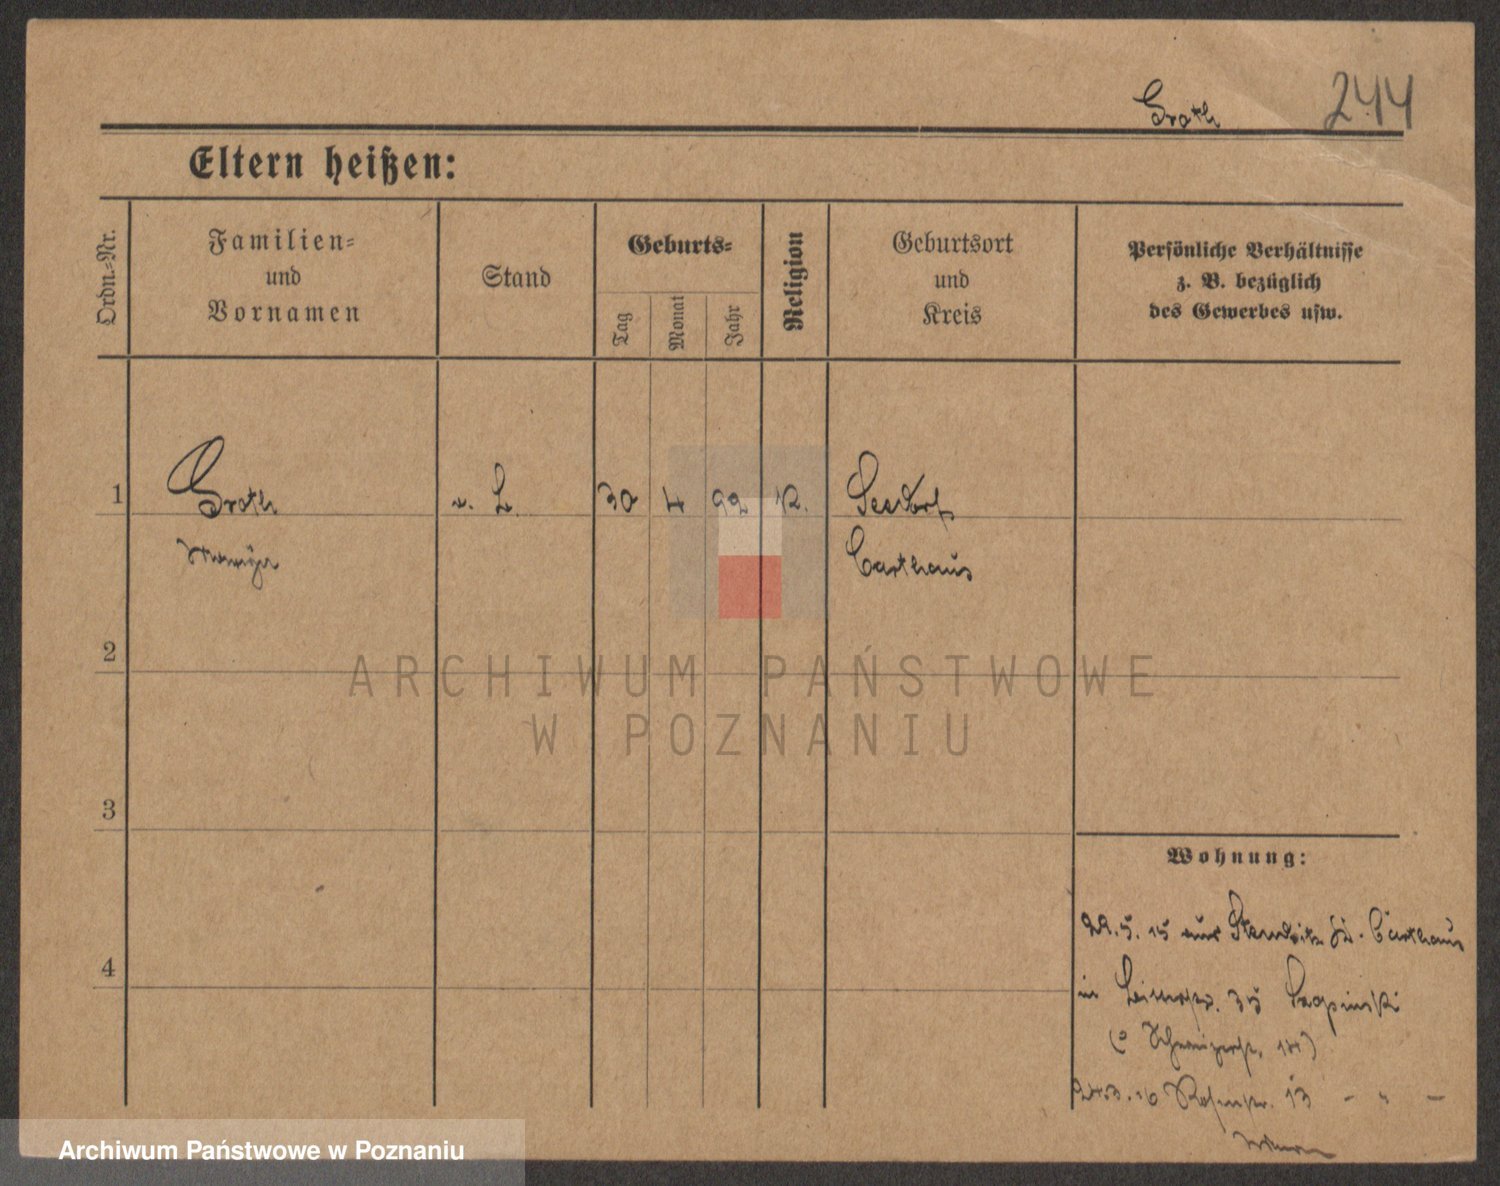 Groth 244
Eltern heißen:
Ordn.=Nr.
Familien=
und
Vornamen
Stand
Geburts=
Tag
Monat
Jahr
Religion
Geburtsort
und
Kreis
Persönliche Verhältnisse
z. B. bezüglich
des Gewerbes usw.
1 Groth L. 30 4 99 K. Seedorf
Carthaus
2
3
4
Wohnung:
29.5.15 aus Stendsitz Kr. Carthaus
in 35
24.3.16 13 - " -
ARCHIWUM PAŃSTWOWE
W POZNANIU
Archiwum Państwowe w Poznaniu